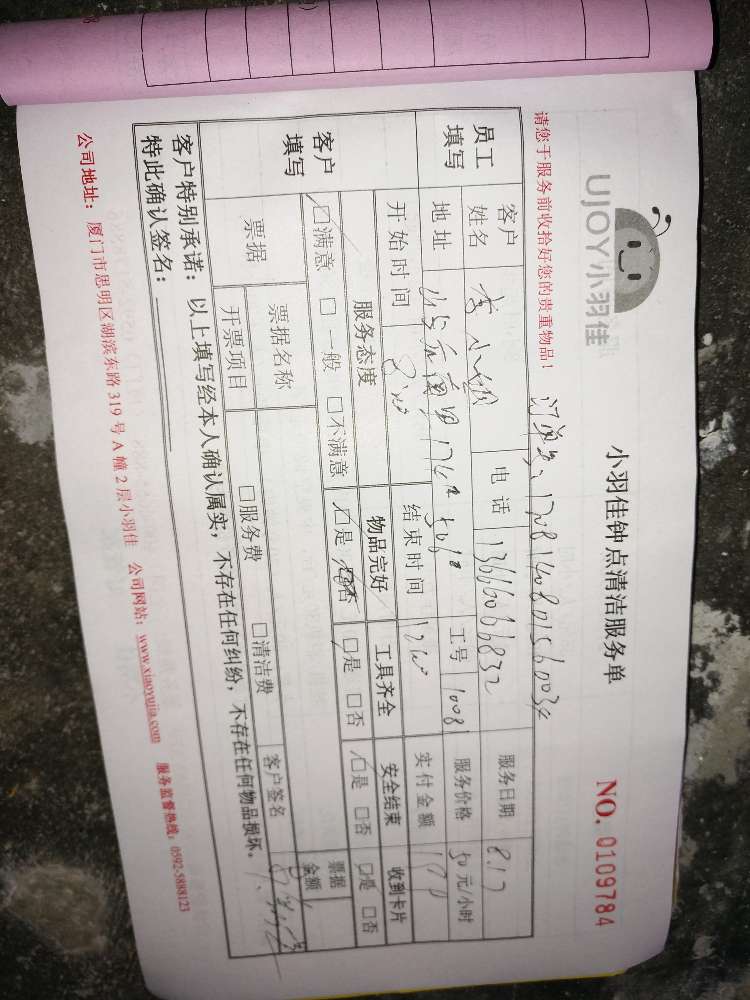 UJOY小羽佳
小羽佳钟点清洁服务单
NO. 0109784
请您于服务前收拾好您的贵重物品！
员工填写
客户姓名
李小姐
电话
13666066832
服务日期
8.17
地址
工号
1008
服务价格
50元/小时
开始时间
8:00
结束时间
12:00
实付金额
客户填写
服务态度
物品完好
工具齐全
安全结束
收到卡片
☑满意 □一般 □不满意
☑是 □否
☑是 □否
☑是 □否
□是 □否
票据
票据名称
开票项目
□服务费 □清洁费
客户签名
票据金额
客户特别承诺：以上填写经本人确认属实，不存在任何纠纷，不存在任何物品损坏。
特此确认签名：
公司地址：厦门市思明区湖滨东路319号A幢2层小羽佳 公司网站：www.xiaoyujia.com 服务监督热线：0592-5888123